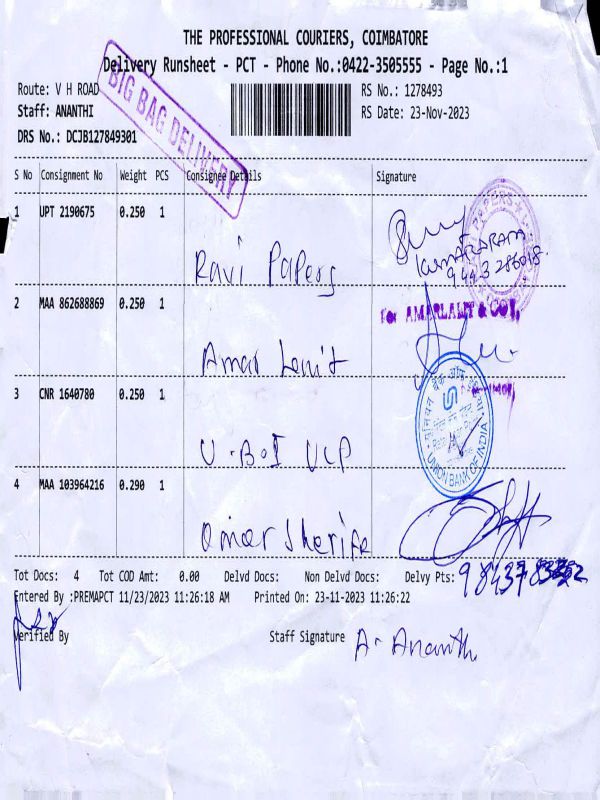 THE PROFESSIONAL COURIERS, COIMBATORE
Delivery Runsheet - PCT - Phone No.:0422-3505555 - Page No.:1
Route: V H ROAD
RS No.: 1278493
Staff: ANANTHI
RS Date: 23-Nov-2023
DRS No.: DCJB127849301
BIG BAG DELIVERY
S No Consignment No Weight PCS Consignee Details Signature
1 UPT 2190675 0.250 1
Ravi Papers
KUMARARAJA
2 MAA 862688869 0.250 1
For AMARLALIT & CO.,
Amar
3 CNR 1640780 0.250 1
यूनियन बैंक ऑफ इंडिया
UNION BANK OF INDIA
U.B.I VLP
4 MAA 103964216 0.290 1
Omar Sheriff
Tot Docs: 4 Tot COD Amt: 0.00 Delvd Docs: Non Delvd Docs: Delvy Pts:
Entered By :PREMAPCT 11/23/2023 11:26:18 AM Printed On: 23-11-2023 11:26:22
Verified By
Staff Signature A. Ananthi